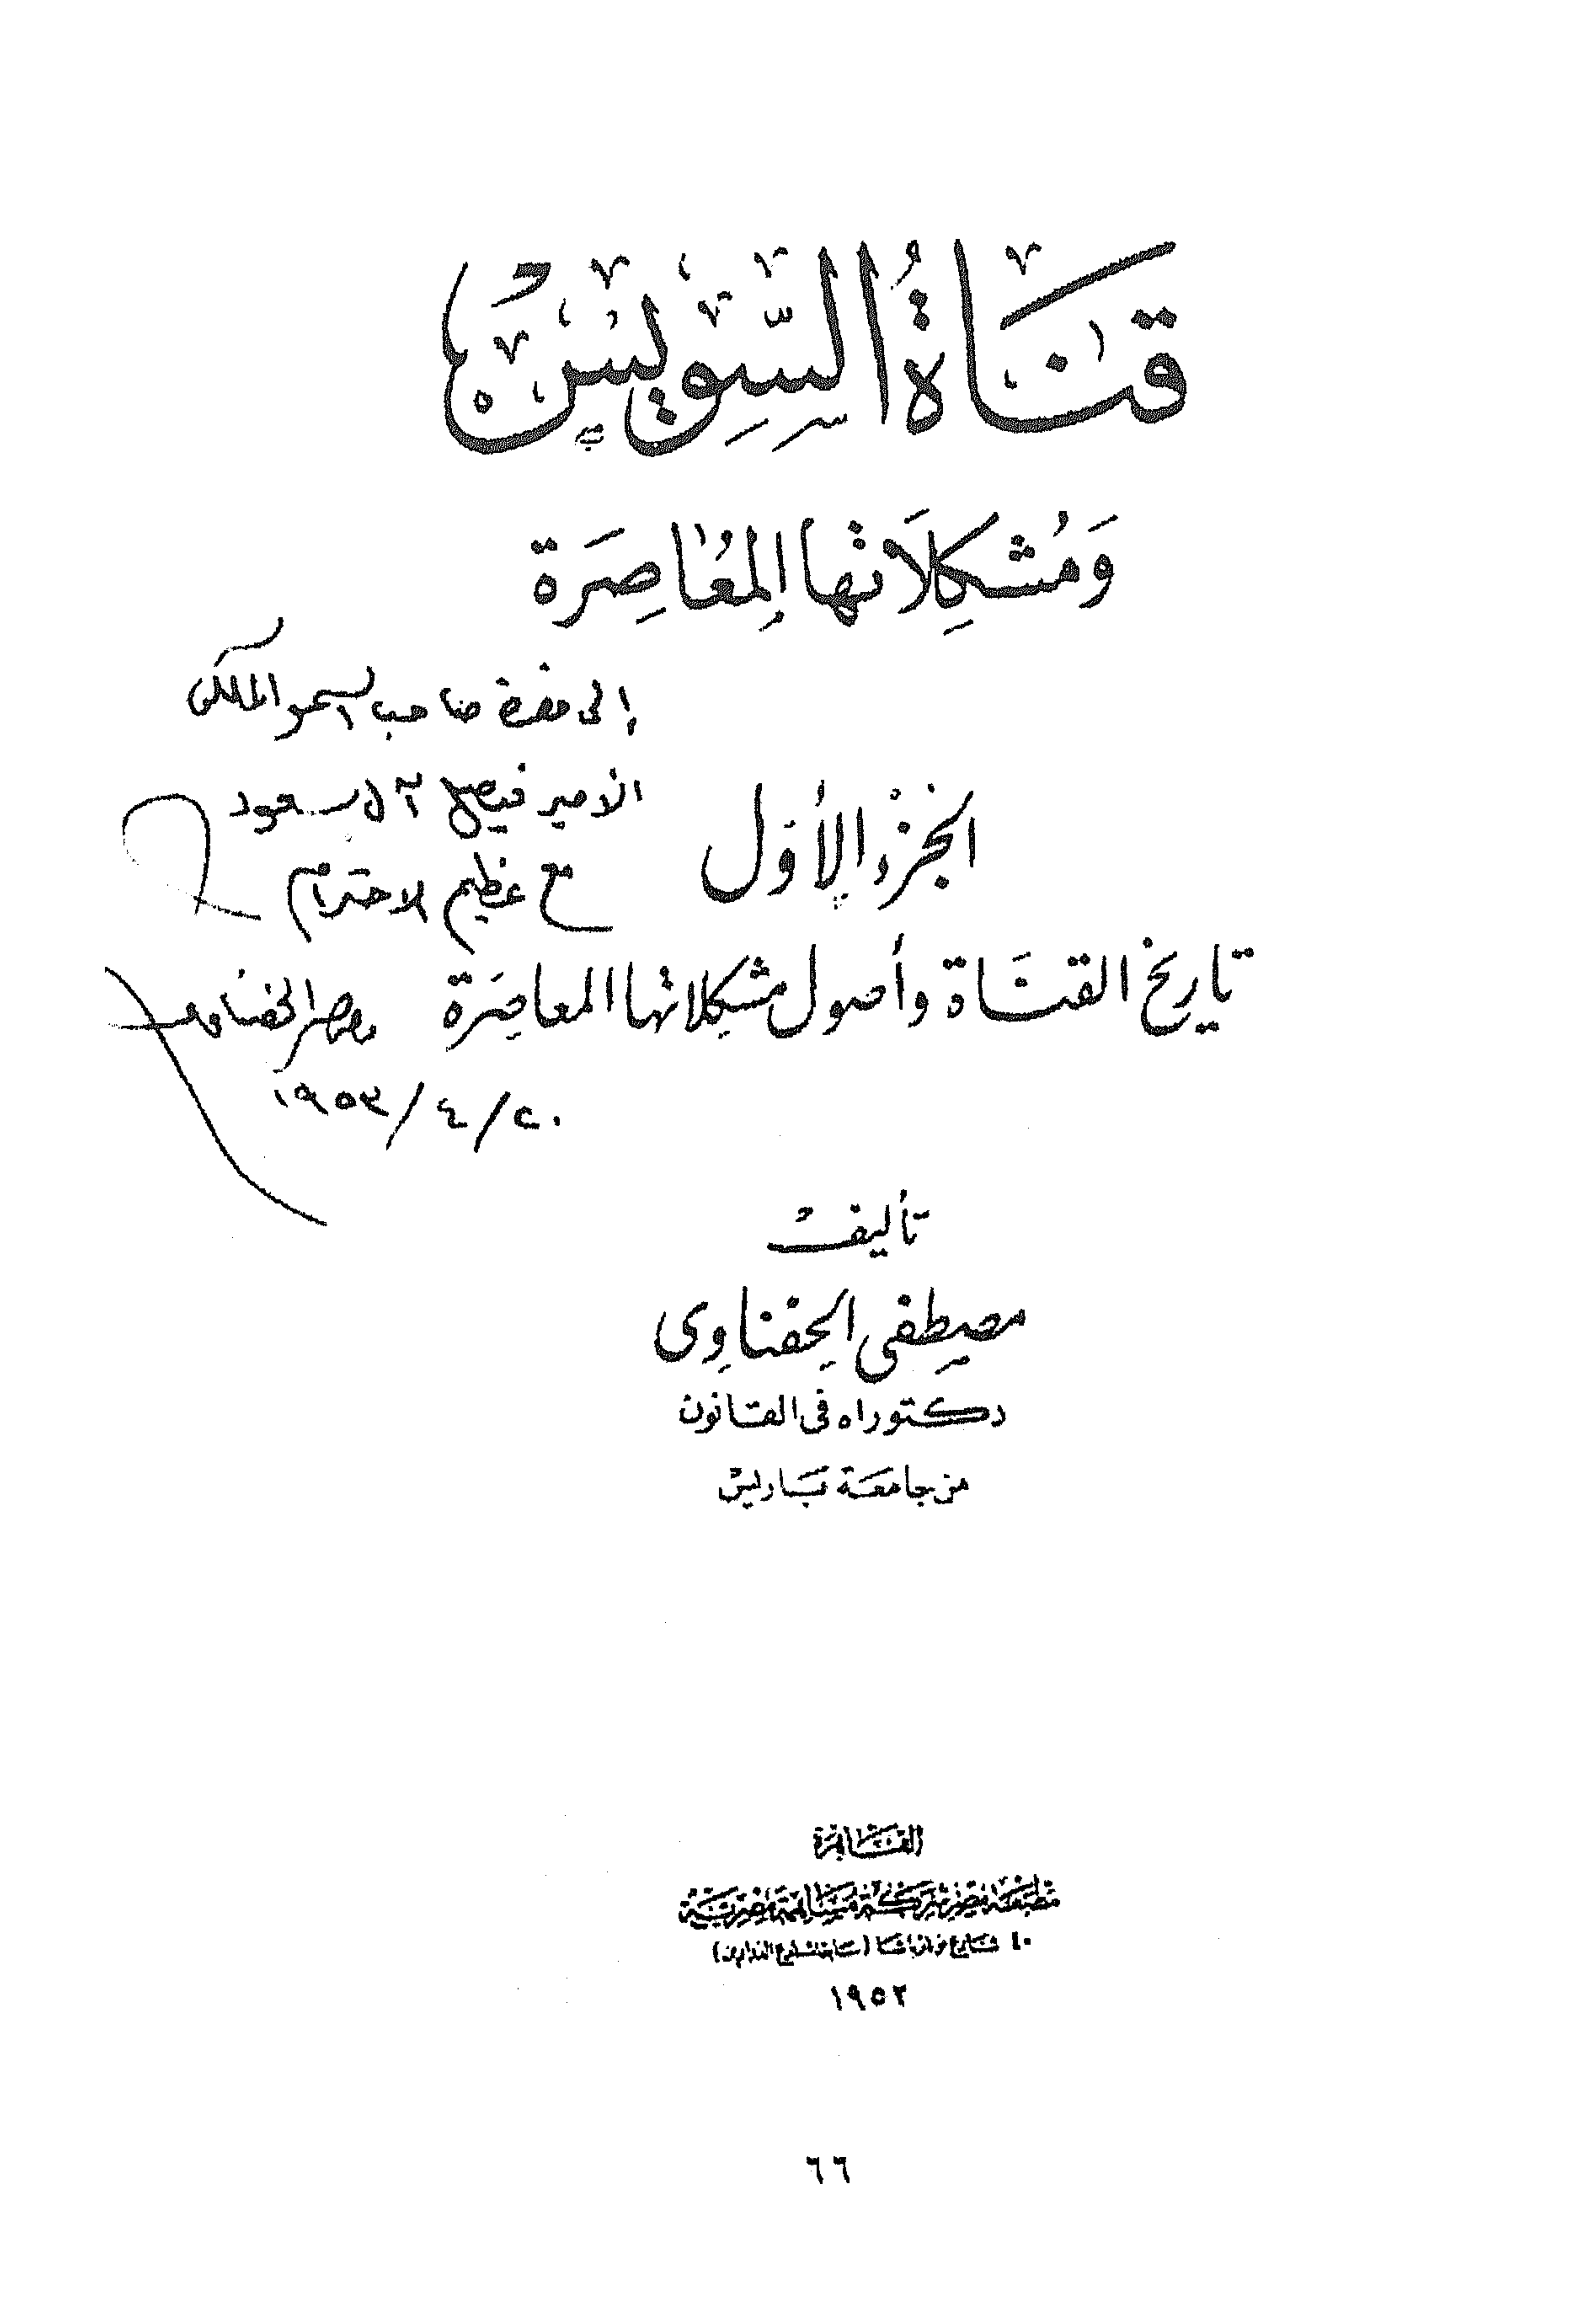 قَنَاةُ السِّوِيسْ
وَمُشكِلاَتها المُعَاصِرَة
إلى حضرة صاحب السمو الملكى
الأمير فيصل آل سعود
الجزء الأول
مع عظيم الاحترام
تاريخ القناة وأصول مشكلاتها المعاصرة
مصطفى الحفناوى
٢٠/٤/١٩٥٣
تأليف
مصطفى الحفناوى
دكتوراه فى القانون
من جامعة باريس
القاهرة
مطبعة مصر شركة مساهمة مصرية
٤٠ شارع نوبار باشا (سابقا شارع الدواوين)
١٩٥٢
٦٦